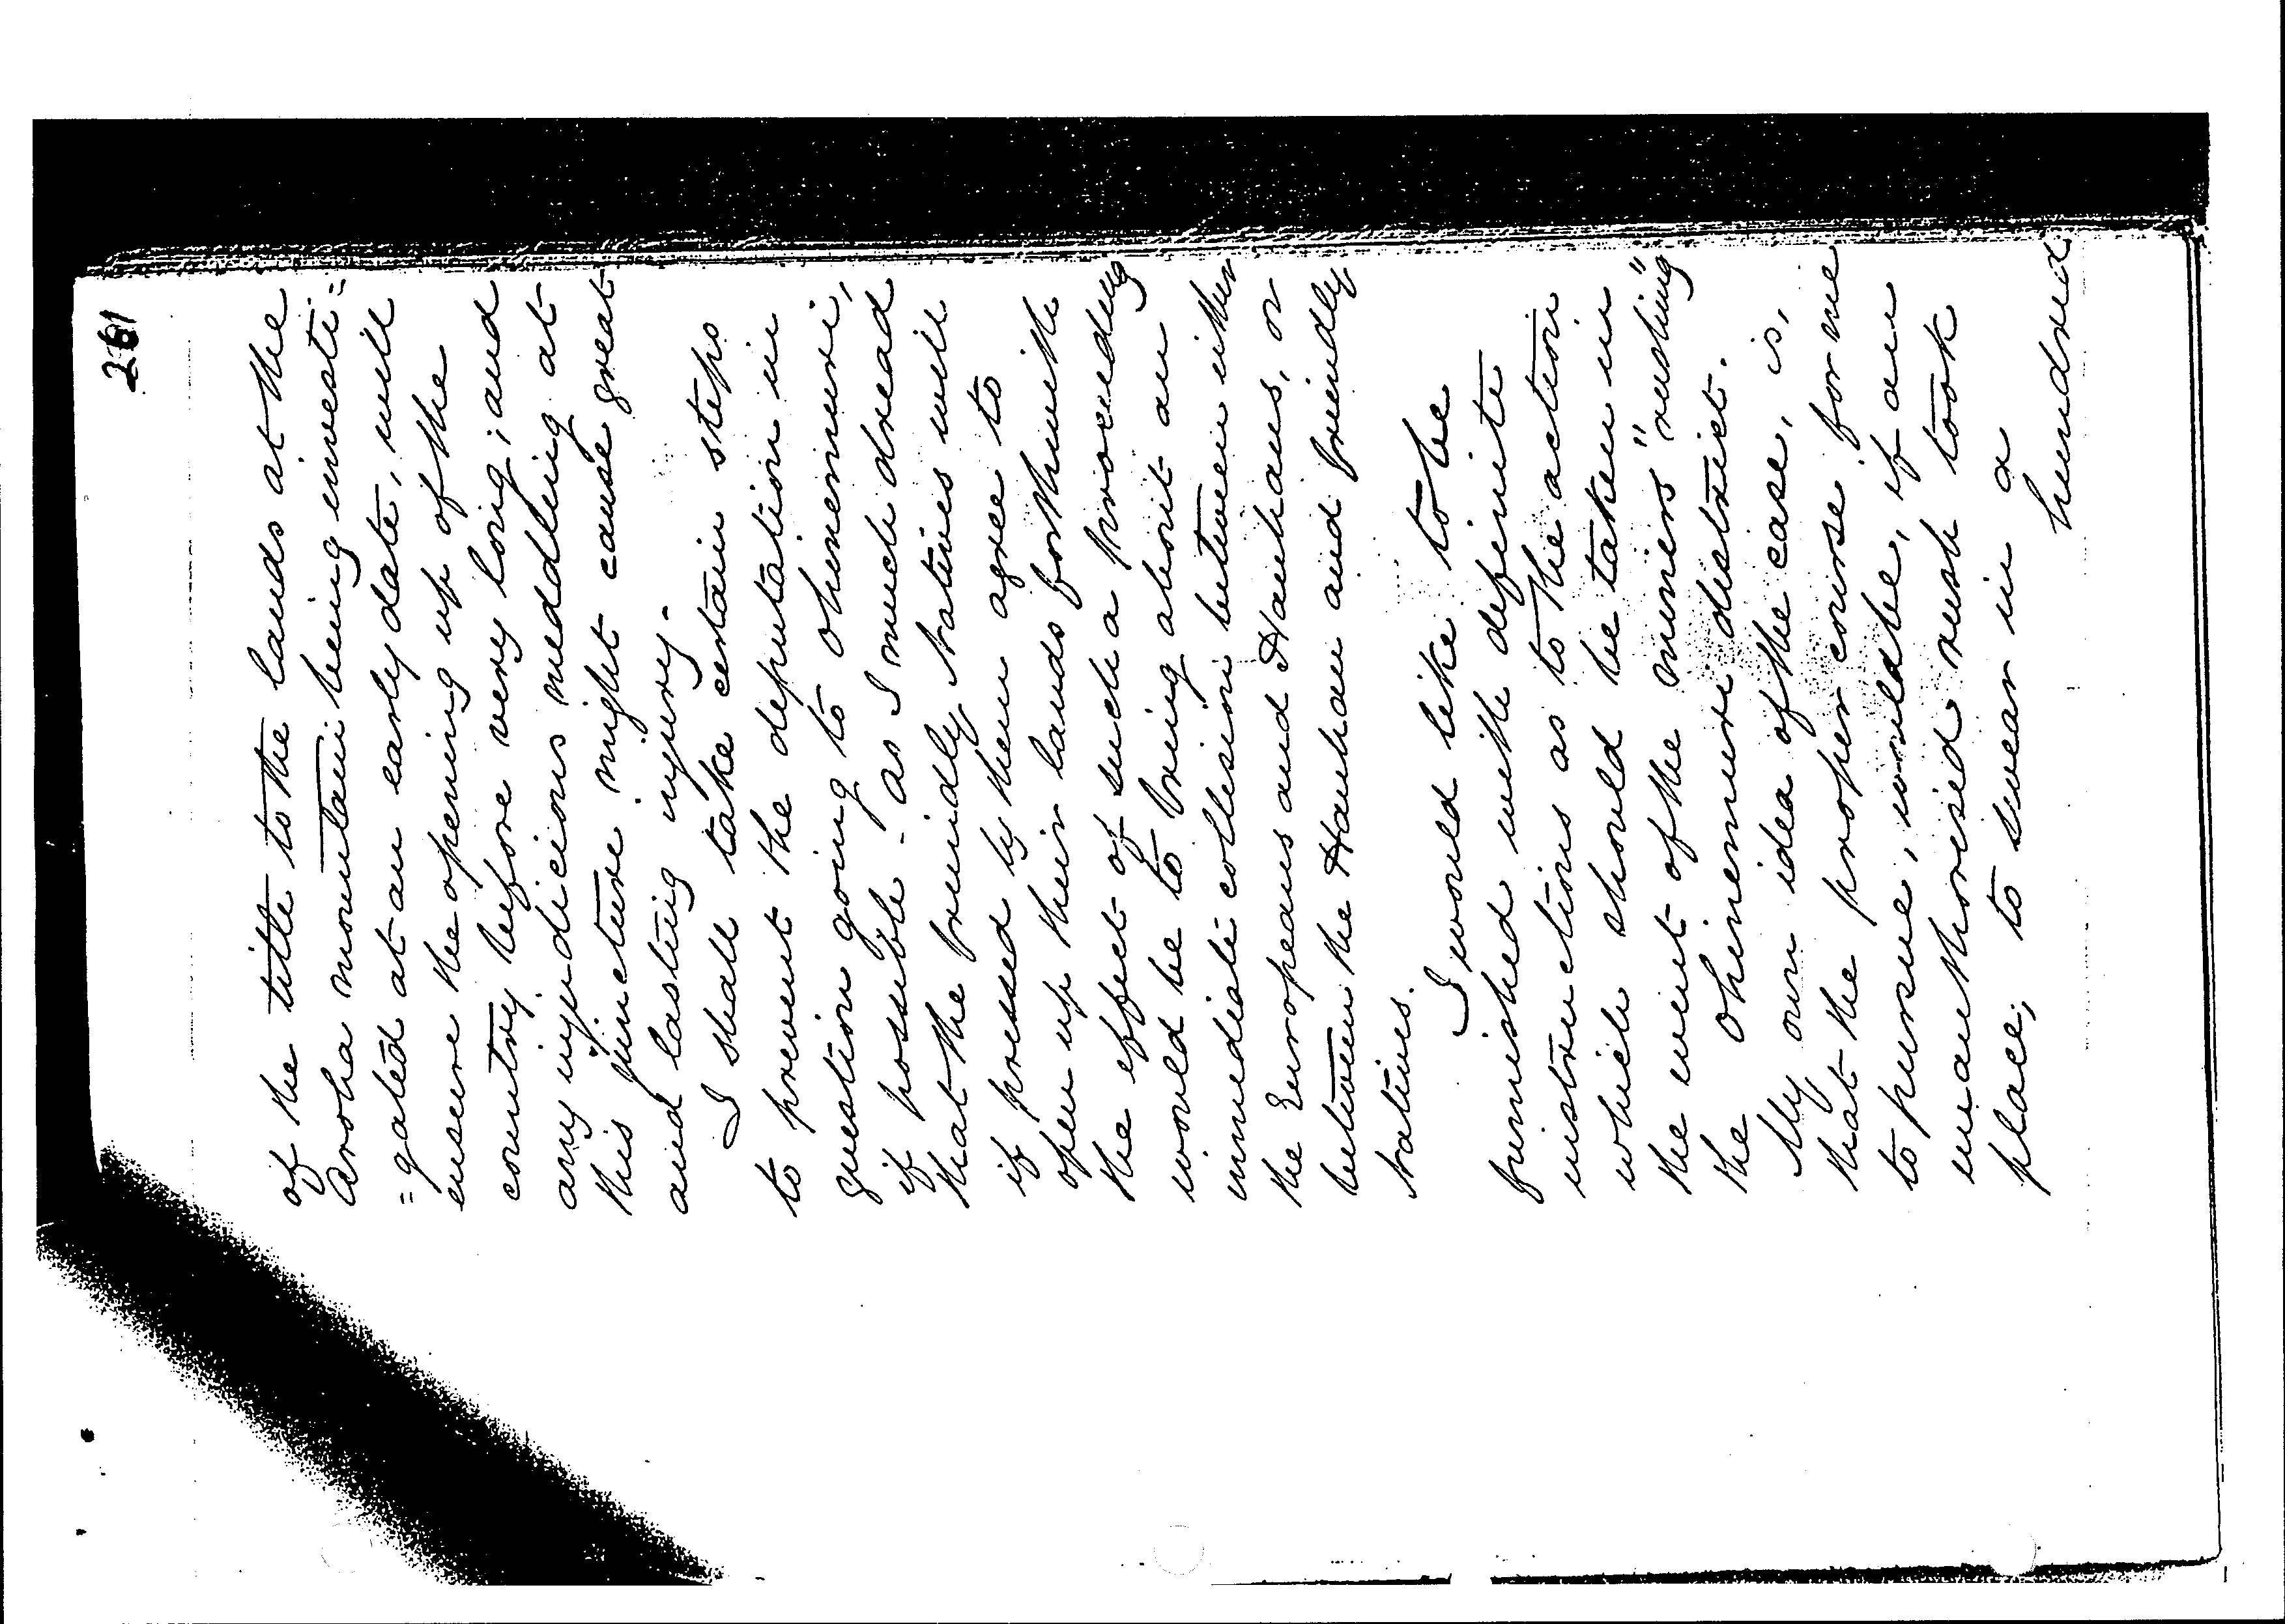 261
of the title to the lands at the
Aroha mountain being investi=
=gated at an early date, will
ensure the opening up of the
country before very long; and
any injudicious meddling at
this juncture might cause great
and lasting injury.
I shall take certain steps
to prevent the deputation in
question going to Ohinemuri,
if possible - as I much dread
that the friendly Natives will
if pressed by them agree to
open up their lands forthwith
the effect of such a proceeding
would be to bring about an
immediate collision between either
the Europeans and Hauhaus, or
between the Hauhau and friendly
Natives.
I would like to be
furnished with definite
instructions as to the action
which should be taken in
the event of the miners "rushing"
the Ohinemuri district.
My own idea of the case, is,
that the proper course for me
to pursue, would be, if an
unauthorised rush took
place, to swear in a
hundred